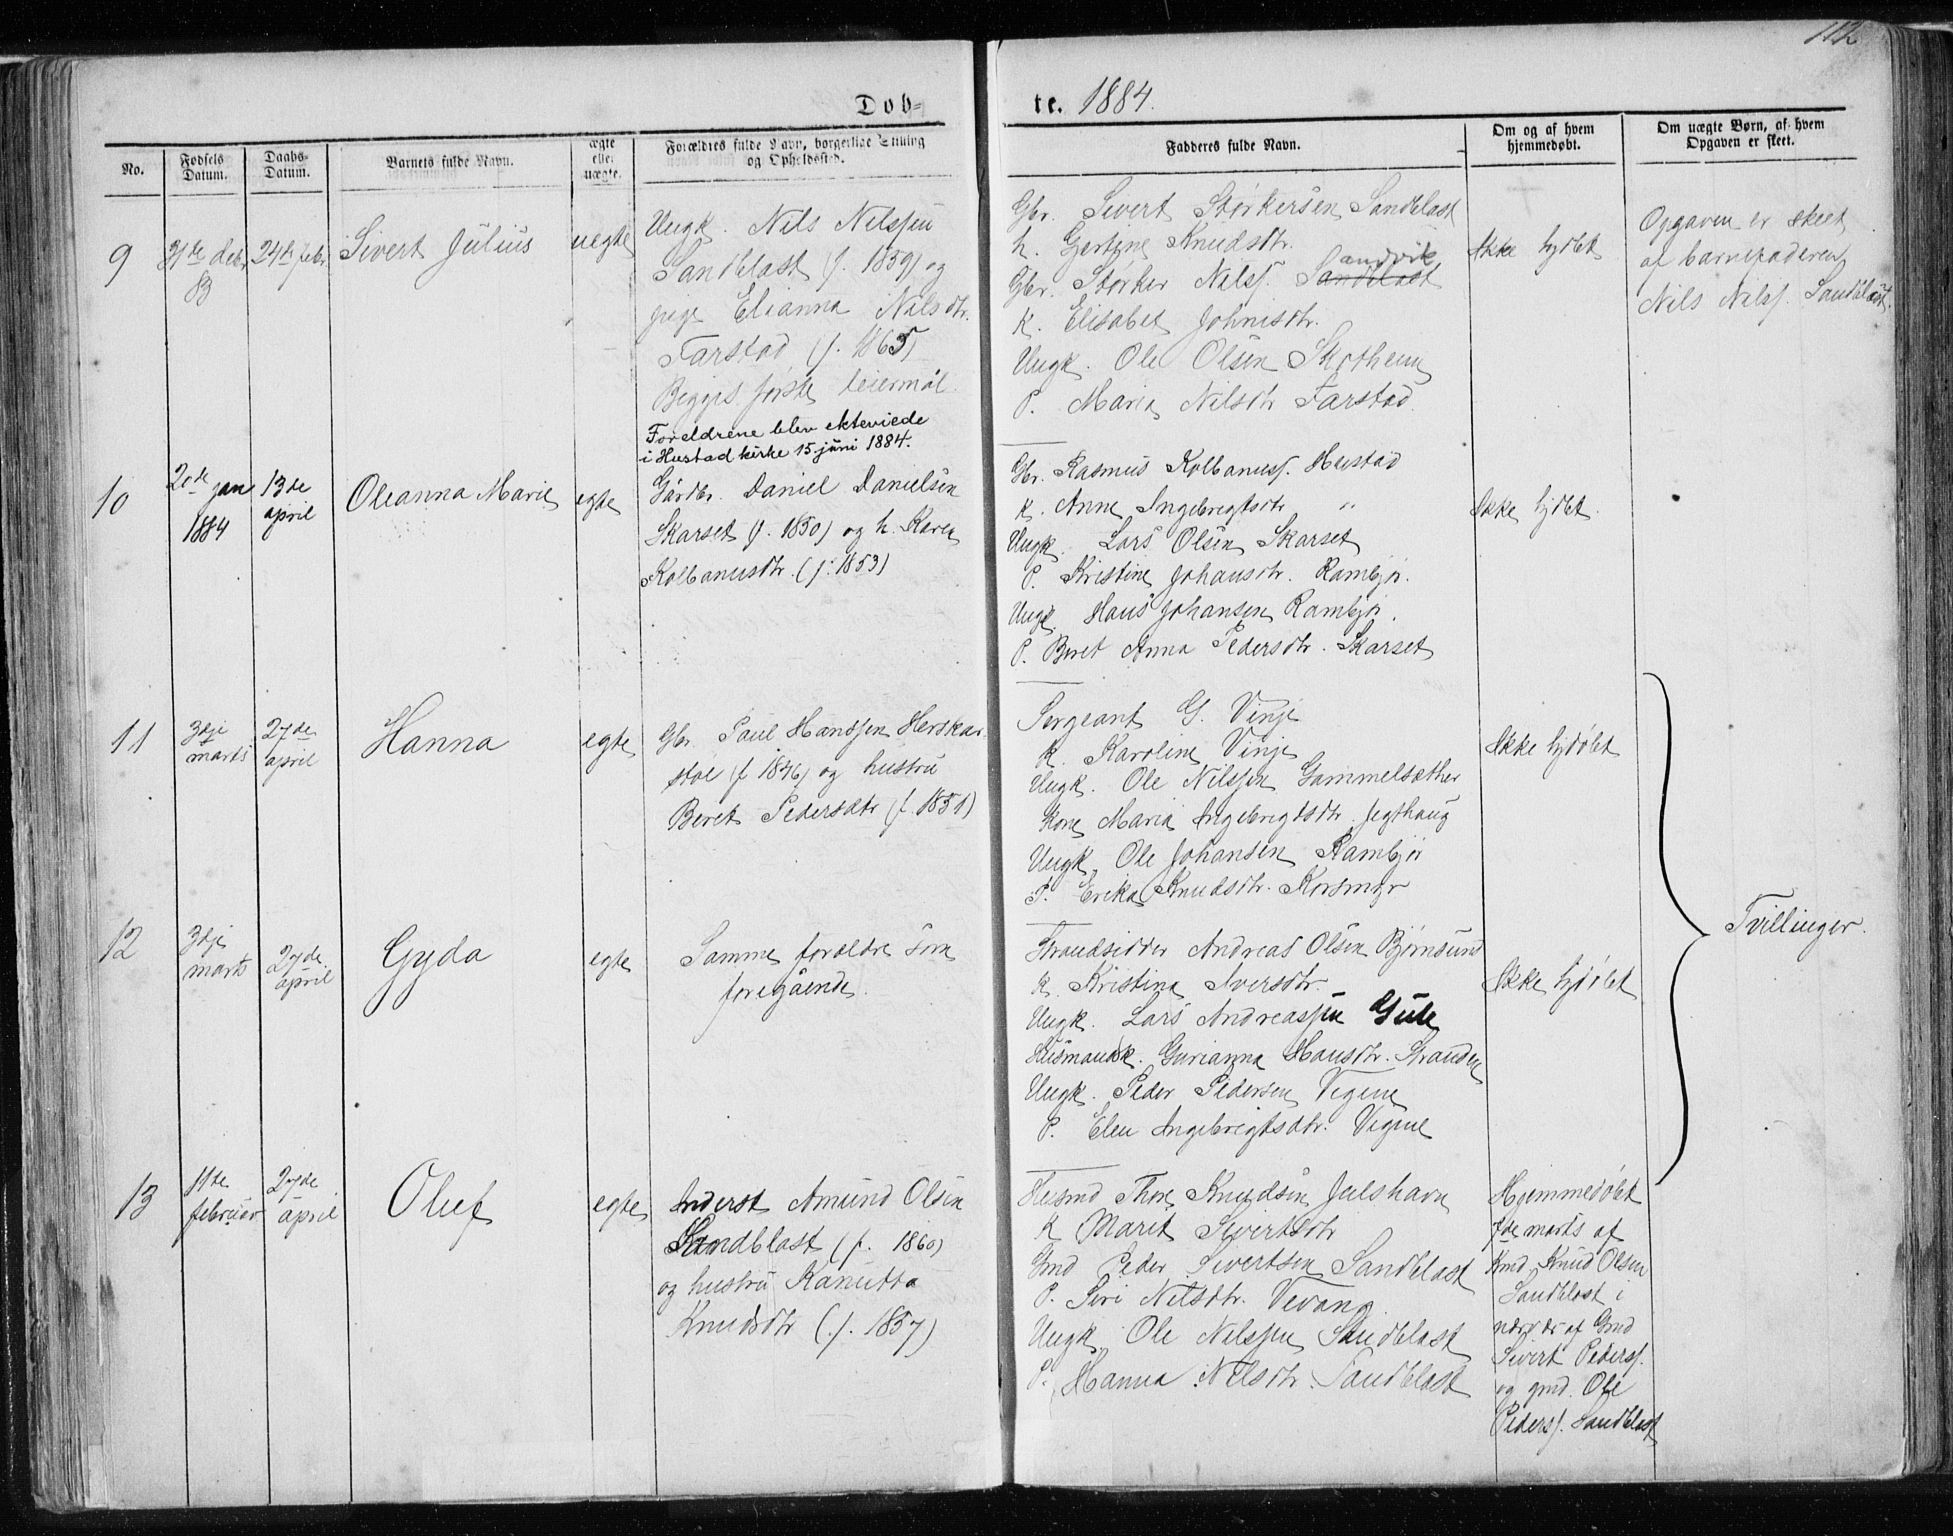 112
Døb=
te. 1884.
No.
Fødsels Datum.
Daabs- Datum.
Barnets fulde Navn.
ægte eller uægte.
Forældres fulde Navn, borgerlige Stilling og Opholdssted.
Fadderes fulde Navn.
Om og af hvem hjemmedøbt.
Om uægte Børn, af hvem Opgaven er skeet.
9
31te debr 83
24de febr
Sivert Julius
uegte
Ungk. Nils Nilssen
Sandblast (f. 1859) og
pige Elianna Nilsdtr.
Farstad (f. 1865)
Begges første leiermål.
Foreldrene blev ekteviede
i Hustad kirke 15. juni 1884.
Gbr. Sivert Størkersen Sandblast
h. Gertine Knudsdtr.
Sandvik
Gbr. Størker Nilss. Sandblast
K. Elisabet Johnisdtr.
Ungk. Ole Olsen Skotheim
P. Maria Nilsdtr Farstad.
Ikke hjdbt
Opgaven er skeet
af barnefaderen
Nils Nilss. Sandblast.
10
2de jan 1884
13de april
Oleanna Marie
egte
Gårdbr. Daniel Danielsen
Skarset (f. 1850) og h. Karen
Kolbanusdtr. (f. 1853)
Gbr. Rasmus Kolbanuss. Hustad
K. Anne Ingebrigtsdtr "
Ungk. Lars Olsen Skarset
P. Kristine Johansdtr. Rambjør.
Ungk. Hans Johansen Rambjør.
P. Beret Anna Pedersdtr. Skarset
Ikke hjdbt.
11
3dje marts
27de april
Hanna
egte
Gbr. Paul Hanssen Herskar
stol (f. 1846) og hustru
Beret Pedersdtr (f. 1851)
Sergeant G. Vinje
K. Karoline Vinje
Ungk. Ole Nilssen Gammelsæther
Kone Maria Ingebrigtsdtr. Jegthaug
Ungk. Ole Johansen Rambjør
P. Erika Knudsdtr. Korsmyr
Ikke hjdøbt
12
3dje marts
27de april
Gyda
egte
Samme foreldre som
foregående.
Strandsidder Andreas Olsen Bjørnsund
K. Kristina Iversdtr.
Ungk. Lars Andreassen Gule
Husmandsk. Gurianna Hansdtr. Stranden
Ungk. Peder Pedersen Vegene
P. Elen Ingebrigtsdtr. Vegene
Ikke hjdøbt
Tvillinger.
13
11te februar
27de april
Oluf
egte
Inderst Amund Olsen
Sandblast (f. 1860)
og hustru Kanutta
Knudsdtr (f. 1857)
Husmd Thore Knudsen Julshavn
K Marit Sivertsdtr
Gmd Peder Sivertsen Sandblast
P. Siri Nilsdtr. Vevang.
Ungk. Ole Nilssen Sandblast
P. Hanna Nilsdtr. Sandblast
Hjemmedøbt
7de marts af
Kmd. Knud Olsen
Sandblast i
nærvær af Gmd
Sivert Peders.
og gmd. Ole
Peders. Sandblast